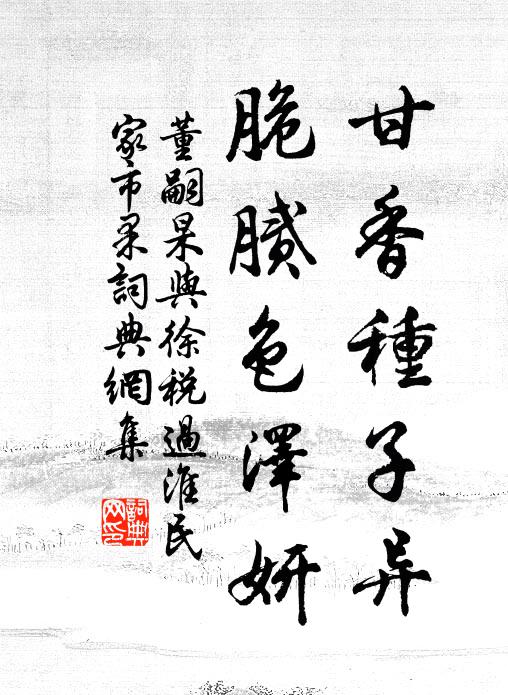 甘香種子异
脆腻色澤妍
董嗣杲與徐税過淮民
家市果詞典網集
詞典
网印